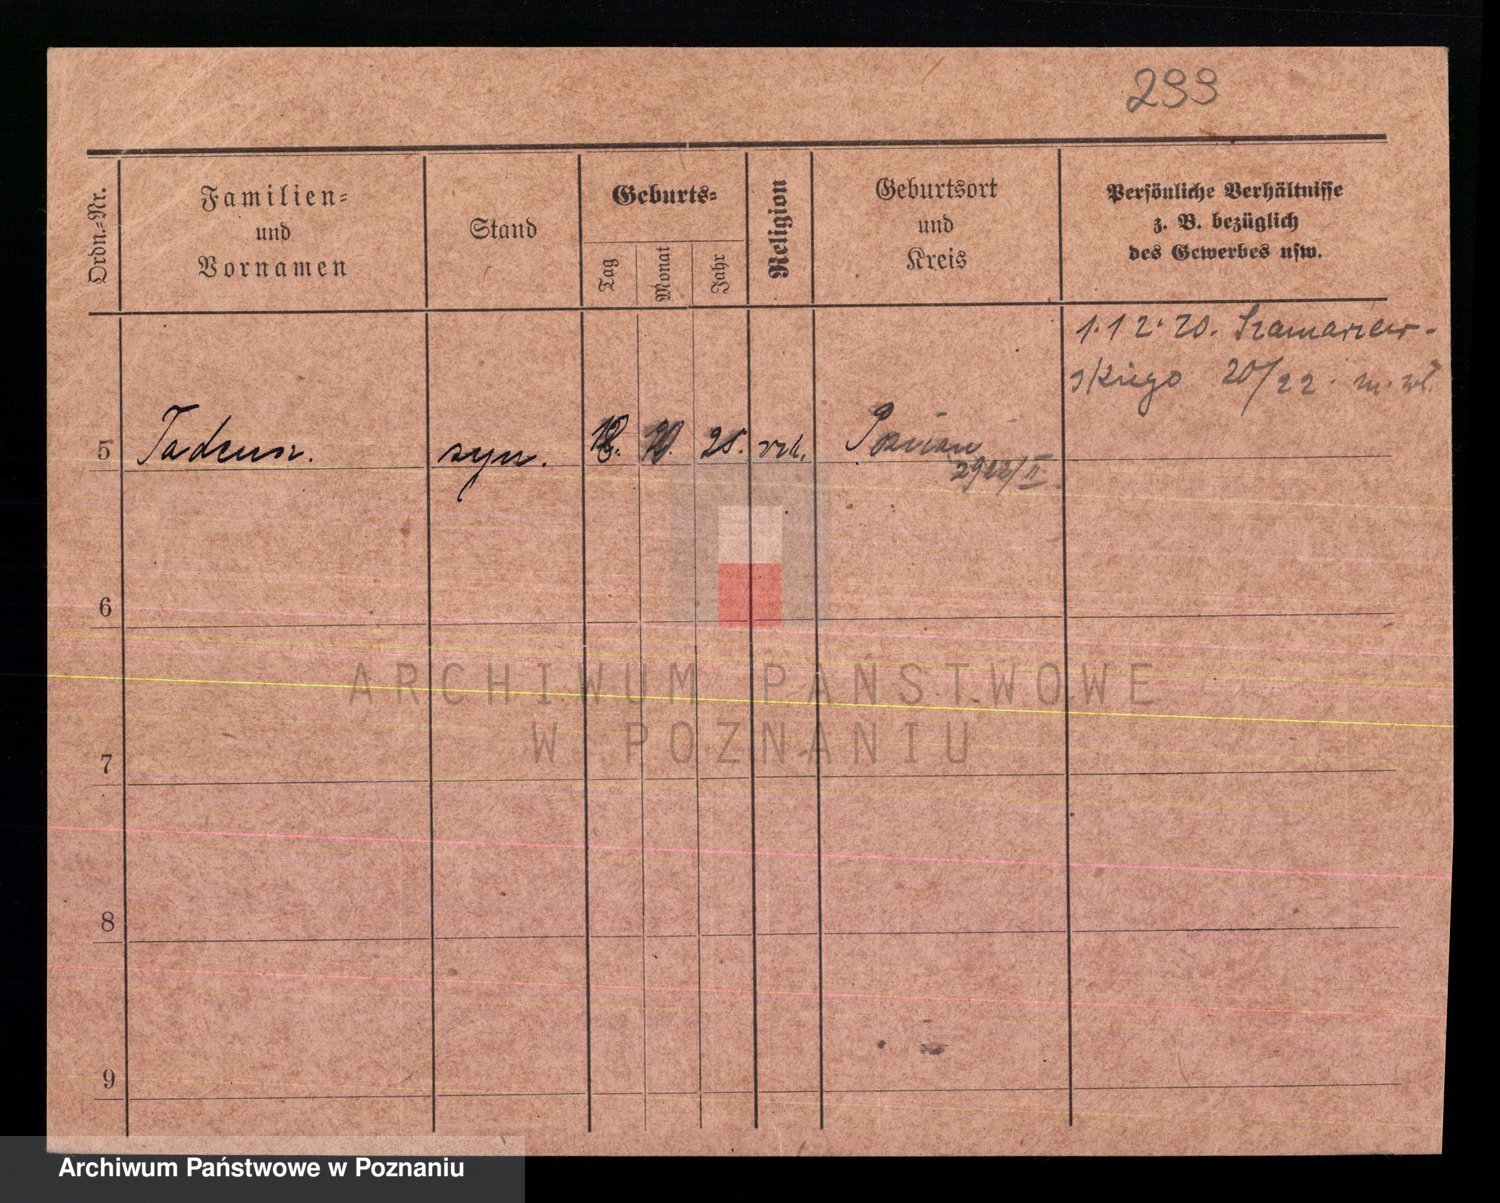 299
Ordn.-Nr.
Familien-
und
Vornamen
Stand
Geburts-
Tag
Monat
Jahr
Religion
Geburtsort
und
Kreis
Persönliche Verhältnisse
z. B. bezüglich
des Gewerbes usw.
1.12.20. Szamarzew-
skiego 20/22. m. wł.
5 Tadeusz. syn. 25. rzk. Poznań
2922/II.
6
7
8
9
ARCHIWUM PAŃSTWOWE
W POZNANIU
Archiwum Państwowe w Poznaniu